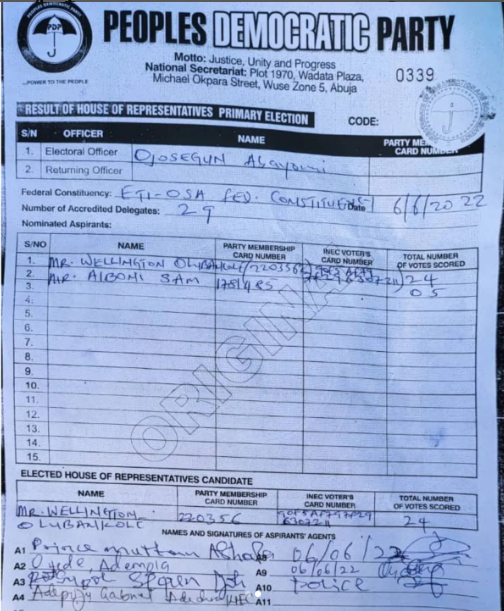 PDP
...POWER TO THE PEOPLE
PEOPLES DEMOCRATIC PARTY
Motto: Justice, Unity and Progress
National Secretariat: Plot 1970, Wadata Plaza,
Michael Okpara Street, Wuse Zone 5, Abuja
0339
RESULT OF HOUSE OF REPRESENTATIVES PRIMARY ELECTION
CODE:
S/N OFFICER NAME PARTY MEMBERSHIP CARD NUMBER
1. Electoral Officer Ojosegun Abayomi
2. Returning Officer
Federal Constituency: ETI-OSA FED. Date 6/6/2022
Number of Accredited Delegates: 29
Nominated Aspirants:
S/NO NAME PARTY MEMBERSHIP CARD NUMBER INEC VOTER'S CARD NUMBER TOTAL NUMBER OF VOTES SCORED
1. MR. WELLINGTON 24
2. MR. AIBONI SAM 05
3.
4.
5.
6.
7.
8.
9.
10.
11.
12.
13.
14.
15.
ORIGINAL
ELECTED HOUSE OF REPRESENTATIVES CANDIDATE
NAME PARTY MEMBERSHIP CARD NUMBER INEC VOTER'S CARD NUMBER TOTAL NUMBER OF VOTES SCORED
MR. WELLINGTON 220356 24
NAMES AND SIGNATURES OF ASPIRANTS' AGENTS
A1 Prince A8 06/06/22
A2 A9 06/06/22
A3 A10 police
A4 Gabriel A11